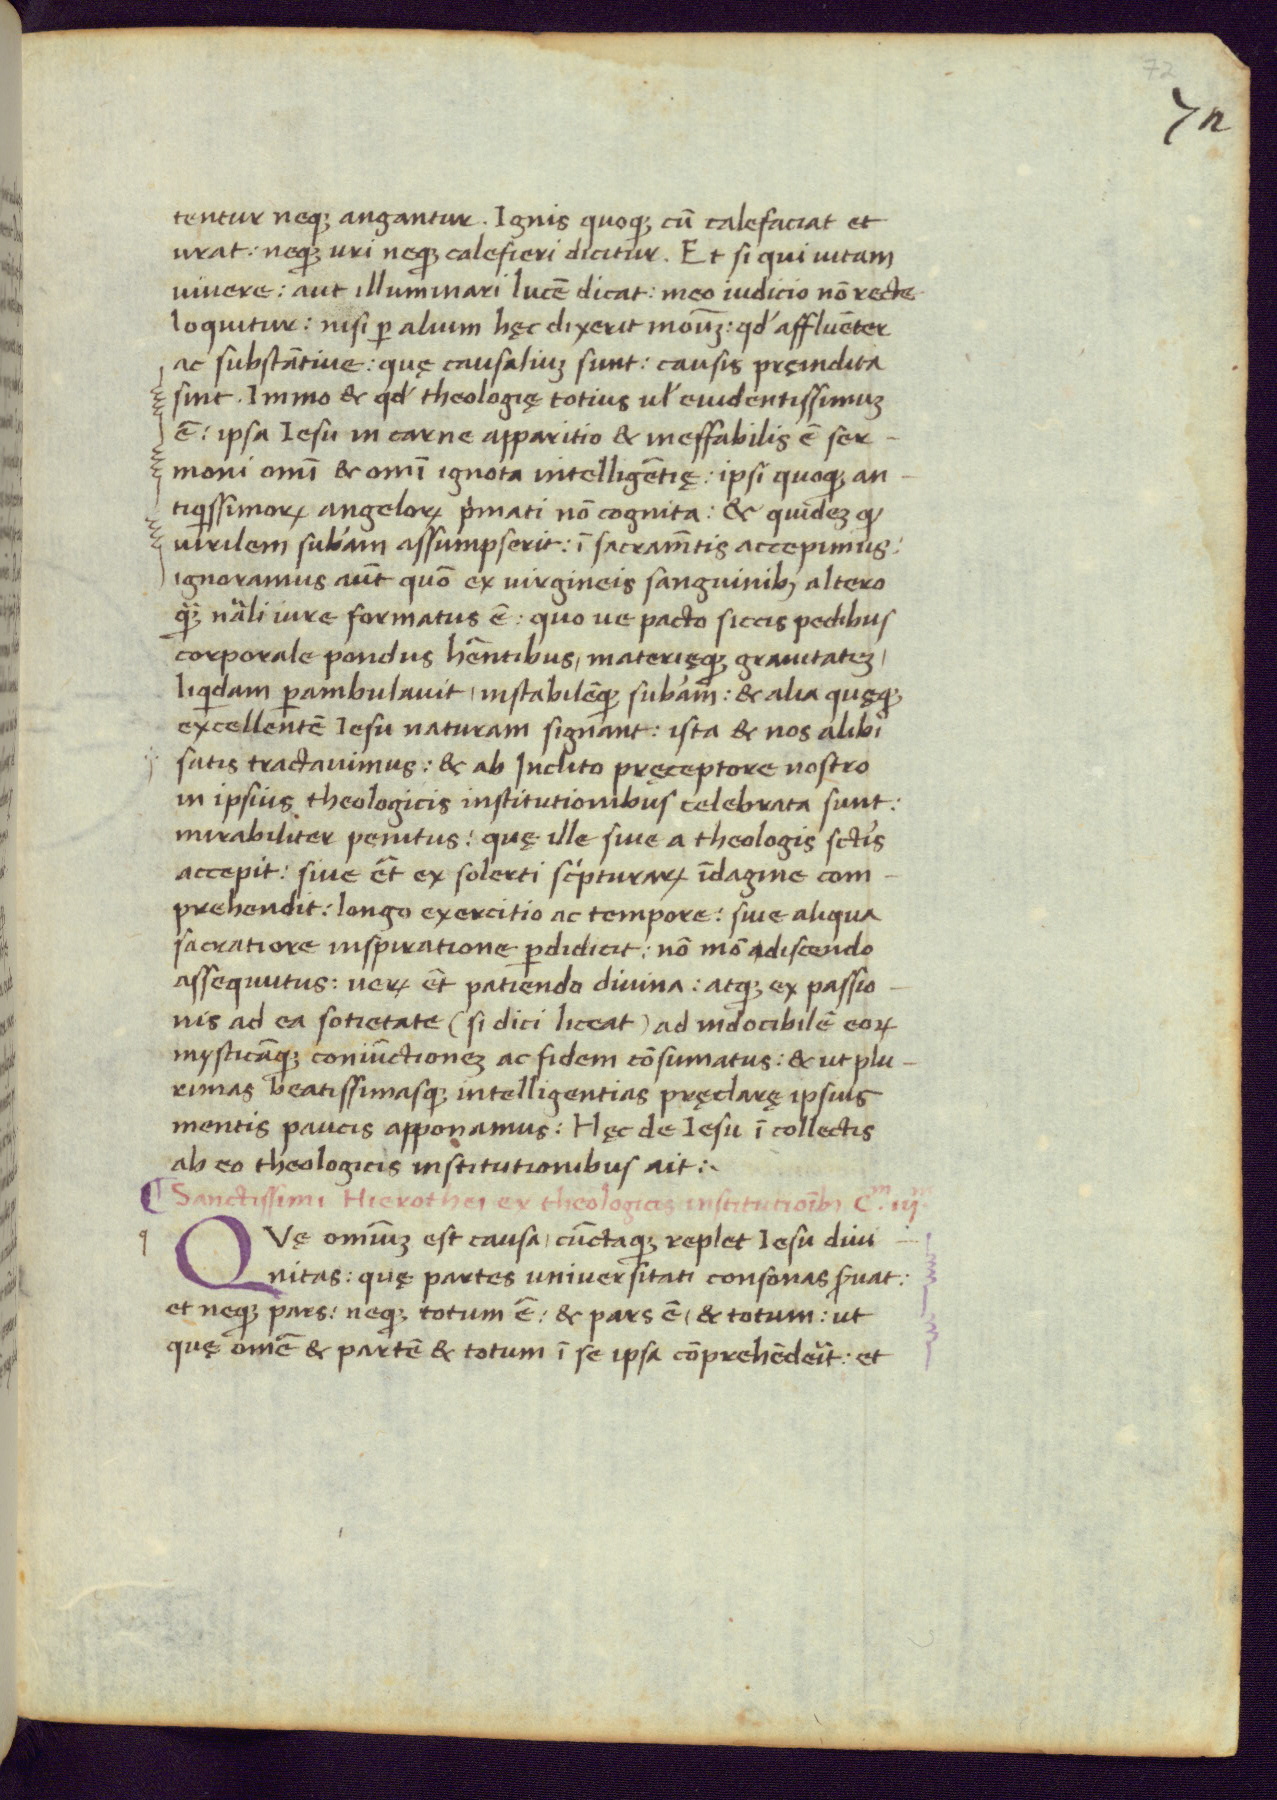 72
72
tentur neqꝫ angantur. Ignis quoqꝫ cū calefaciat et
urat: neqꝫ uri neqꝫ calefieri dicitur. Et si qui uitam
uiuere: aut illuminari lucē dicat: meo iudicio nō recte
loquitur: nisi ꝑ alium hęc dixerit modū: qd́ affluēter
ac substātiue: quę causaliuꝫ sunt: causis pręindita
sint. Immo & qd́ theologię totius ul' euidentissimuꝫ
ē: ipsa Iesu in carne apparitio & ineffabilis ē ser-
moni omī & omī ignota intelligētię: ipsi quoqꝫ an-
tiqissimoꝝ angeloꝝ pͥmati nō cognita: & quidеꝫ ꝙ
uirilem sub'am assumpserit: ī sacramētis accepimus:
ignoramus aūt quō ex uirgineis sanguinibꝫ altero
q̄ꝫ nāli iure formatus ē: quo ue pacto siccis pedibus
corporale pondus hēntibus, materięqꝫ grauitateꝫ,
liqidam ꝑambulauit, instabilēqꝫ sub'am: & alia quęqꝫ
excellentē Iesu naturam signant: ista & nos alibi
satis tractauimus: & ab Inclito pręceptore nostro
in ipsius theologicis institutionibus celebrata sunt:
mirabiliter penitus: quę ille siue a theologis sctis
accepit: siue ēt ex solerti scͥpturaꝝ īdagine com-
prehendit: longo exercitio ac tempore: siue aliqua
sacratiore inspiratione ꝑdidicit: nō mō adiscendo
assequutus: ueꝝ ēt patiendo diuina: atqꝫ ex passio-
nis ad ea sotietate (si dici liceat) ad indocibilē eoꝝ
mysticāqꝫ coniūctioneꝫ ac fidem cōsumatus: & ut plu-
rimas beatissimasqꝫ intelligentias pręclarę ipsius
mentis paucis apponamus: Hęc de Iesu ī collectis
ab eo theologicis institutionibus ait:
¶ Sanctissimi Hierothei ex theologicis institutiōibꝫ Cᵐ. iijᵐ.
QVę omiūꝫ est causa, cūctaqꝫ replet Iesu diui-
nitas: quę partes uniuersitati consonas ẜuat:
et neqꝫ pars: neqꝫ totum ē: & pars ē, & totum: ut
quę omē & partē & totum ī se ipsa cōprehēdеrit: et